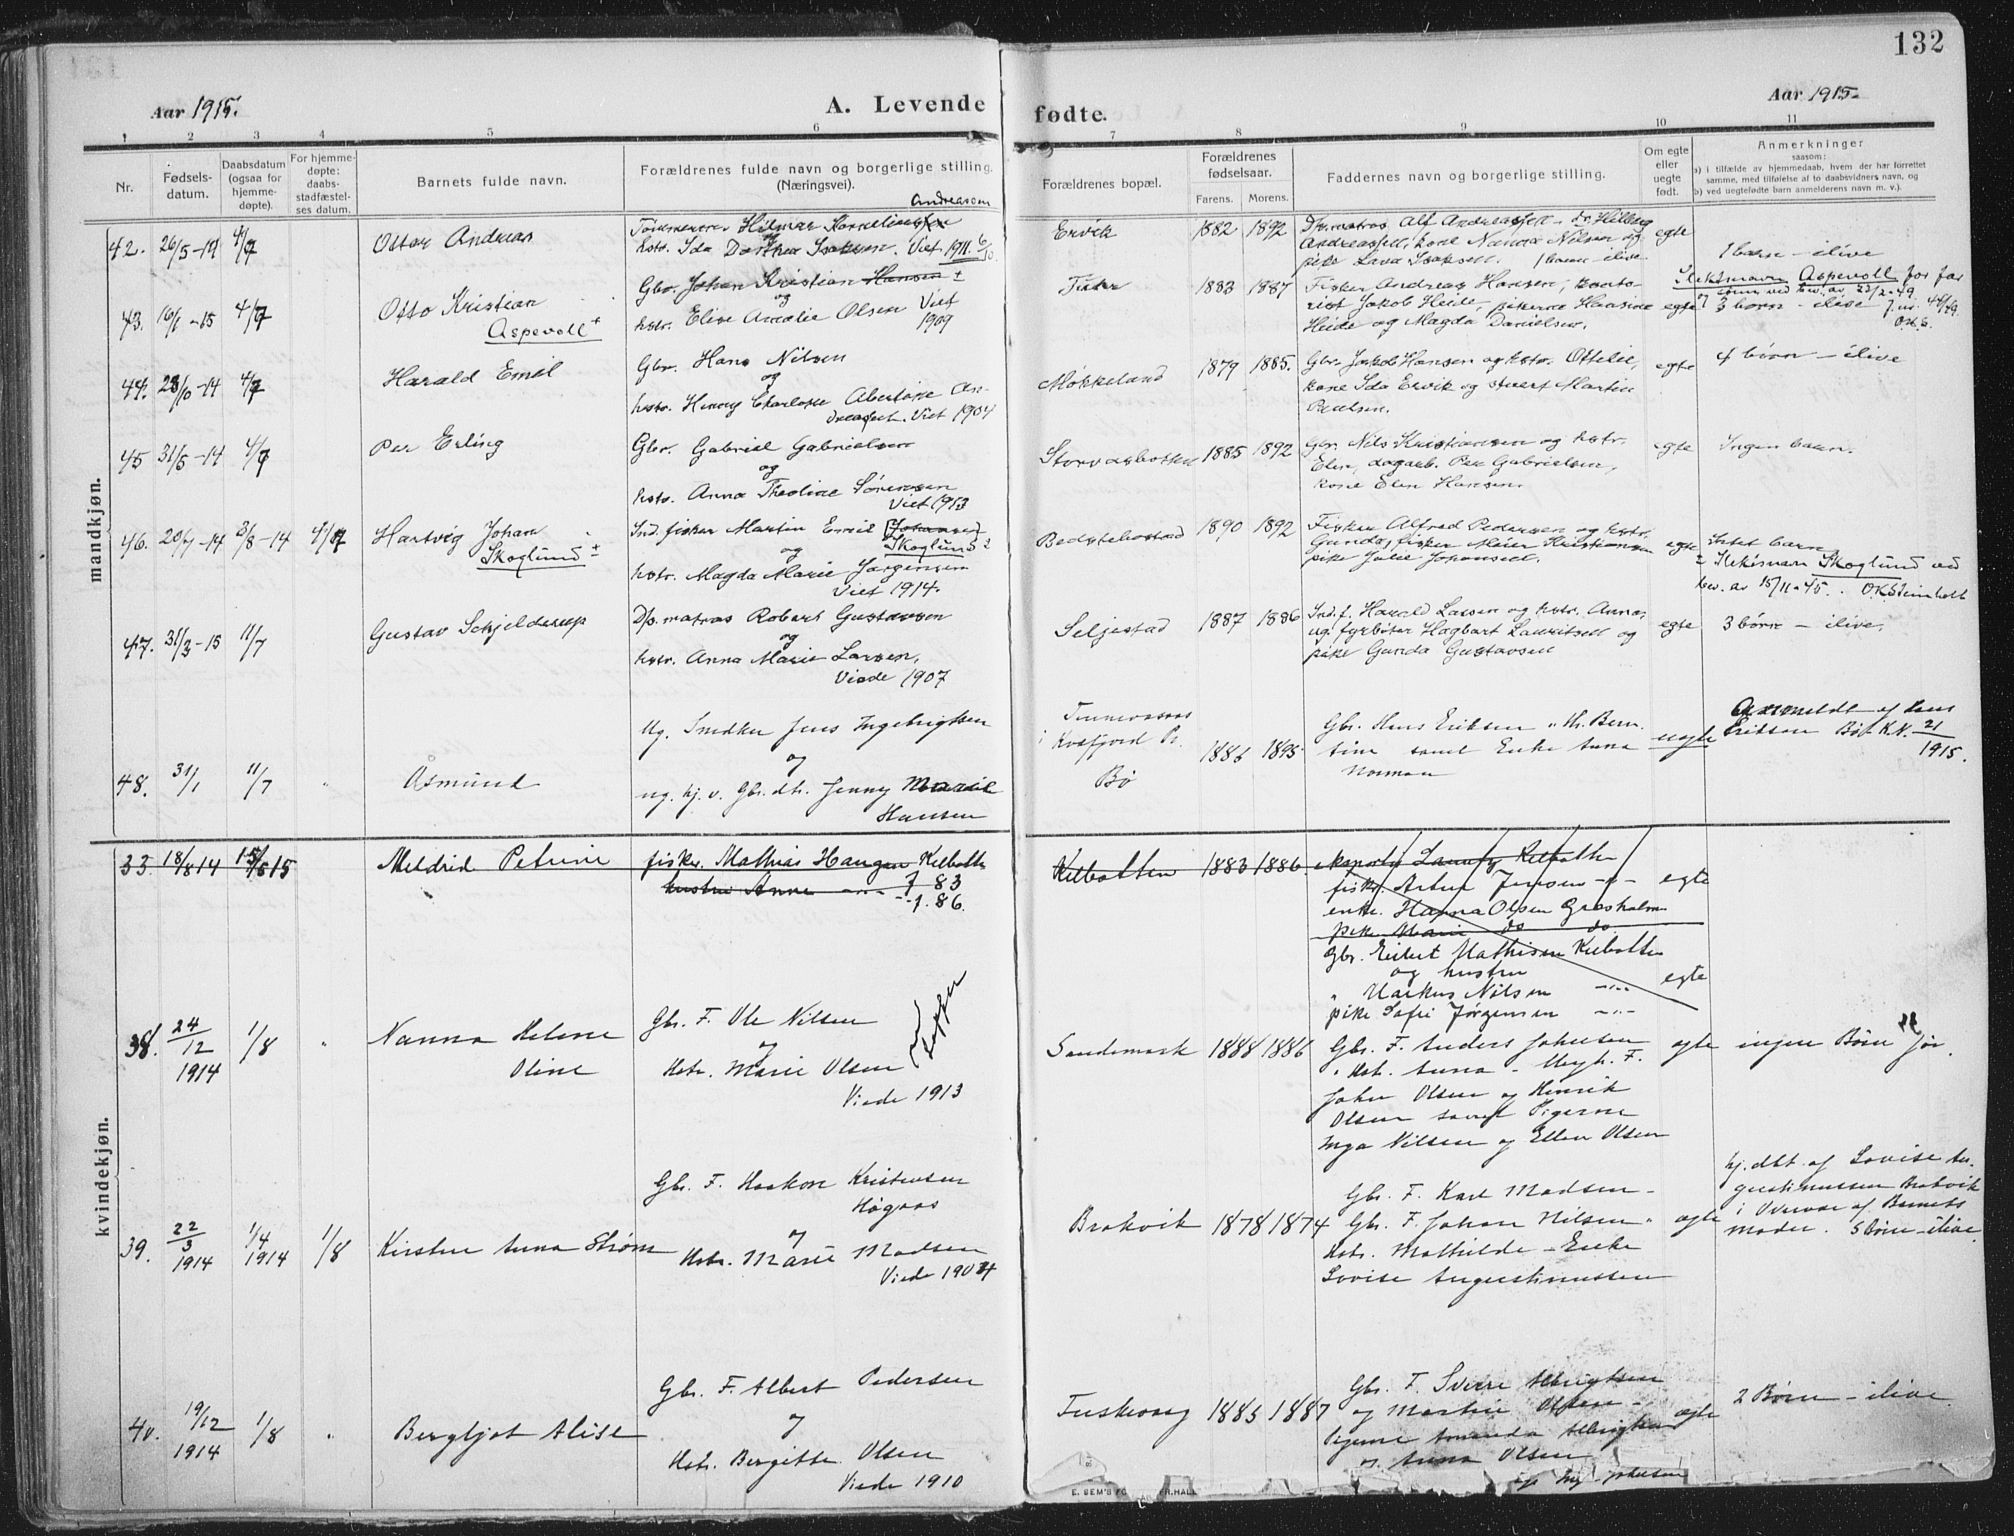 132
Aar 1915.
A. Levende
fødte.
Aar 1915.
1 2 3 4 5 6 7 8 9 10 11
Nr.
Fødsels-
datum.
Daabsdatum
(ogsaa for
hjemme-
døpte).
For hjemme-
døpte:
daabs-
stadfæstel-
ses datum.
Barnets fulde navn.
Forældrenes fulde navn og borgerlige stilling.
(Næringsvei).
Forældrenes bopæl.
Forældrenes
fødselsaar.
Farens. Morens.
Faddernes navn og borgerlige stilling.
Om egte
eller
uegte
født.
Anmerkninger
saasom:
a) i tilfælde av hjemmedaab, hvem der har forrettet
samme, med tilføielse af to daabsvidners navn, og
b) ved uegtefødte barn anmelderens navn m. v.).
mandkjøn.
Andreassen
42. 26/5-14 4/7 Ottar Andreas
Tømmermn Hilmar Korneliussen
og
hstr. Ida Dorthea Isaksen. Viet 1911. 6/10.
Ervik 1882 1892
Dp.matros Alf Andreassen - do Hilberg
Andreassen, kone Nanna Nilsen og
pike Lava Isaksen. 1 barn - ilive.
egte
1 barn - ilive
43. 16/1-15 4/7 Otto Kristian
Aspevoll +
Gbr. Johan Kristian Hansen +
og
hstr. Elise Amalie Olsen Viet
1909
1883 1887
Fisker Andreas Hansen, konto-
rist Jakob Heide, pikerne Hansine
Heide og Magda Danielsen.
egte
Slektsnavn Aspevoll for far
3 børn - ilive
44. 28/10-14 4/7 Harald Emil
Gbr. Hans Nilsen
og
hstr. Henny Charlotte Albertine An-
dreassen. Viet 1904
Møkkeland 1879 1885.
Gbr. Jakob Hansen og hstr. Ottilie,
kone Ida Ervik og stuert Martin
Paulsen.
egte
4 børn - ilive
45 31/5-14 4/7 Per Erling
Gbr. Gabriel Gabrielsen
og
hstr. Anna Theoline Sørensen
Viet 1913
Storvasbotten 1885 1892
Gbr. Nils Kristiansen og hstr.
Elen, dagarb. Per Gabrielsen,
kone Elen Hansen.
egte
Ingen barn.
46. 20/7-14 3/8-14 4/7 Hartvig Johan
Skoglund +
Ind. fisker Martin Emil [Johansen]
Skoglund 2
og
hstr. Magda Marie Jørgensen
Viet 1914.
Bedstebostad 1890 1892
Fisker Alfred Pedersen og hstr.
Gunda, fisker Meier Kristiansen
pike Julie Johansen.
egte
Intet barn
2 Slektsnavn Skoglund ved
bev. av 15/11-45. OKSteinholt
47. 31/3-15 11/7 Gustav Schjelderup
Dp. matros Robert Gustavsen
og
hstr. Anna Marie Larsen,
Viede 1907
Seljestad 1887 1886
Ind. f. Harald Larsen og hstr. Anna,
ug. fyrbøter Hagbart Lauritsen og
pike Gunda Gustavsen
egte
3 børn - ilive.
48. 31/1 11/7 " Åsmund
Ug. Snedker Jens Ingebrigtsen
og
ug. hj. v. Gbr. dtr. Jenny Marie
Hansen
i Kvæfjord Pr.
Bø
1886 1895
Gbr. Hans Eriksen " Th. Bern-
tine samt Enke Anna
Norman
uegte
Anmeldt af Hans
Eriksen Bø K.N. 21
1915.
33. 18/8 14 15/5 15 Meldrid Petrine
fiskr. Mathias Haugan Kilbottn
hustru Anna -"- f. 83
-"- f. 86.
Kilbotten 1883 1886.
fiskr. Artur Jensen -"- egte
enke. Hanna Olsen Grøsholm
pike Marie do do.
Gbr. Eilert Mathisen Kilbotten
og hustru egte
" Markus Nilsen -"-
pike Sofie Jørgensen -"-
kvindekjøn.
38. 24/12 1914 1/8 " Nanna Helene
Oline
Gbr. F. Ole Nilsen
og
Hstr. Marie Olsen
Viede 1913
Sandemark 1888 1886
Gbr. F. Anders Johnsen
" Hst. Anna - Ungk. F.
Johan Olsen og Henrik
Olsen samt Pigerne
Inga Nilsen og Ellen Olsen
egte
ingen Børn før.
39. 22/3 1914 1/4 1914 1/8 Kirsten Anna Strøm
Gbr. F. Haakon Kristensen
Høgaas
og
Hstr. Marie Madsen
Viede 1904
Brokvik 1878 1874
Gbr. F. Karl Madsen -
Gbr. F. Johan Nilsen "
Hstr. Mathilde - Enke
Lovise Augustinussen
egte
hj. dbt af Lovise Au-
gustinussen Brokvik
i Overvær af Barnets
moder. 5 Børn - ilive.
40. 19/12 1914 1/8 " Bergljot Alise
Gbr. F. Albert Pedersen
og
Hstr. Bergitte Olsen
Viede 1910
Fuskevaag 1885 1887
Gbr. F. Sverre Albrigtsen
og Martin Olsen -
Pigerne Amanda Albrigtsen
og Anna Olsen
egte
2 Børn - ilive.
E. SEM'S
FR.HALL